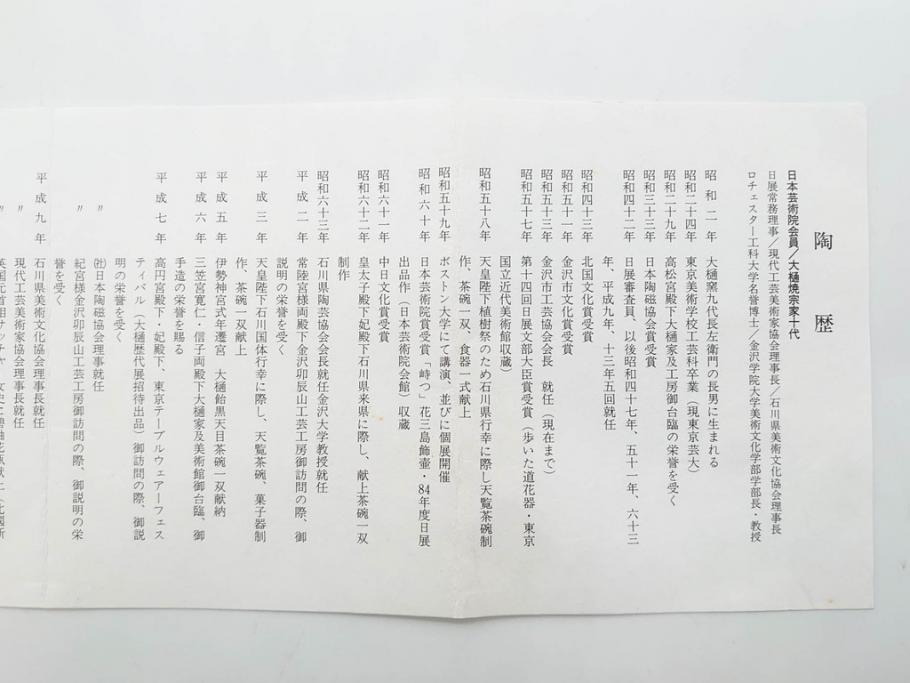 陶歴
日本芸術院会員／大樋焼宗家十代
日展常務理事／現代工芸美術家協会理事長／石川県美術文化協会理事長
ロチェスター工科大学名誉博士／金沢学院大学美術文化学部学部長・教授
昭和二年 大樋窯九代長左衛門の長男に生まれる
昭和二十四年 東京美術学校工芸科卒業（現東京芸大）
昭和二十九年 高松宮殿下大樋家及工房御台臨の栄誉を受く
昭和三十三年 日本陶磁協会賞受賞
昭和四十二年 日展審査員、以後昭和四十七年、五十一年、六十三
年、平成九年、十三年五回就任
昭和四十三年 北国文化賞受賞
昭和五十一年 金沢市文化賞受賞
昭和五十三年 金沢市工芸協会会長 就任（現在まで）
昭和五十七年 第十四回日展文部大臣賞受賞（歩いた道花器・東京
国立近代美術館収蔵）
昭和五十八年 天皇陛下植樹祭のため石川県行幸に際し天覧茶碗制
作、茶碗一双、食器一式献上
昭和五十九年 ボストン大学にて講演、並びに個展開催
昭和六十年 日本芸術院賞受賞「峙つ」花三島飾壷・84年度日展
出品作（日本芸術院会館）収蔵
昭和六十一年 中日文化賞受賞
昭和六十二年 皇太子殿下妃殿下石川県来県に際し、献上茶碗一双
制作
昭和六十三年 石川県陶芸協会会長就任金沢大学教授就任
平成二年 常陸宮様両殿下金沢卯辰山工芸工房御訪問の際、御
説明の栄誉を受く
平成三年 天皇陛下石川国体行幸に際し、天覧茶碗、菓子器制
作、茶碗一双献上
平成五年 伊勢神宮式年遷宮 大樋飴黒天目茶碗一双献納
平成六年 三笠宮寛仁・信子両殿下大樋家及美術館御台臨、御
手造の栄誉を賜る
平成七年 高円宮殿下・妃殿下、東京テーブルウェアーフェス
ティバル（大樋歴代展招待出品）御訪問の際、御説
明の栄誉を受く
〃 ㈳日本陶磁協会理事就任
〃 紀宮様金沢卯辰山工芸工房御訪問の際、御説明の栄
誉を受く
平成九年 石川県美術文化協会理事長就任
〃 現代工芸美術家協会理事長就任
〃 英国元首相サッチャー女史に